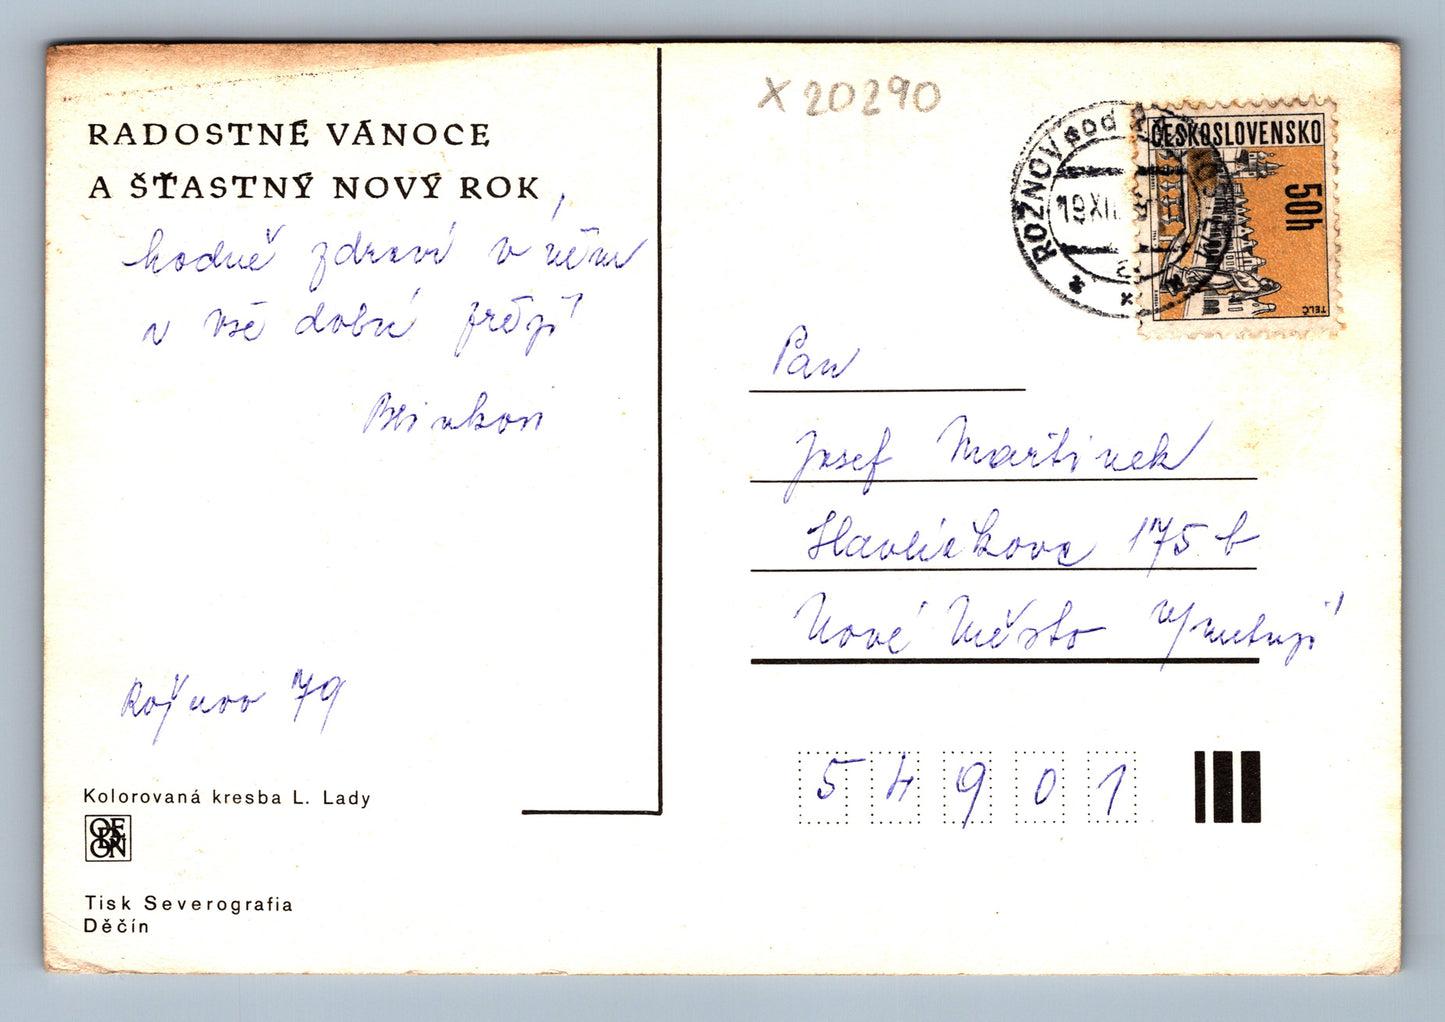 RADOSTNÉ VÁNOCE
A ŠŤASTNÝ NOVÝ ROK,
hodně zdraví v něm
v vše dobré přejí
Rožnov 79
Kolorovaná kresba L. Lady
ODEON
Tisk Severografia
Děčín
X 20290
ROŽNOV pod
19.XII.
ČESKOSLOVENSKO
50h
TELČ
Pan
Josef Martinek
Havlíčkova 175 b
Nové Město n/Metují
54901